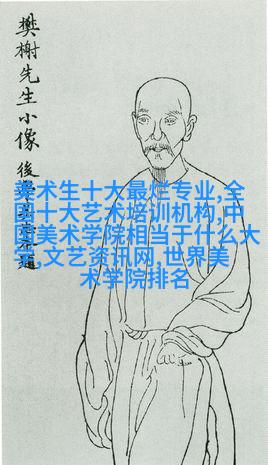 樊榭先生小像
後
美术生十大最烂专业,全
国十大艺术培训机构,中
国美术学院相当于什么大
学,文艺资讯网,世界美
术学院排名